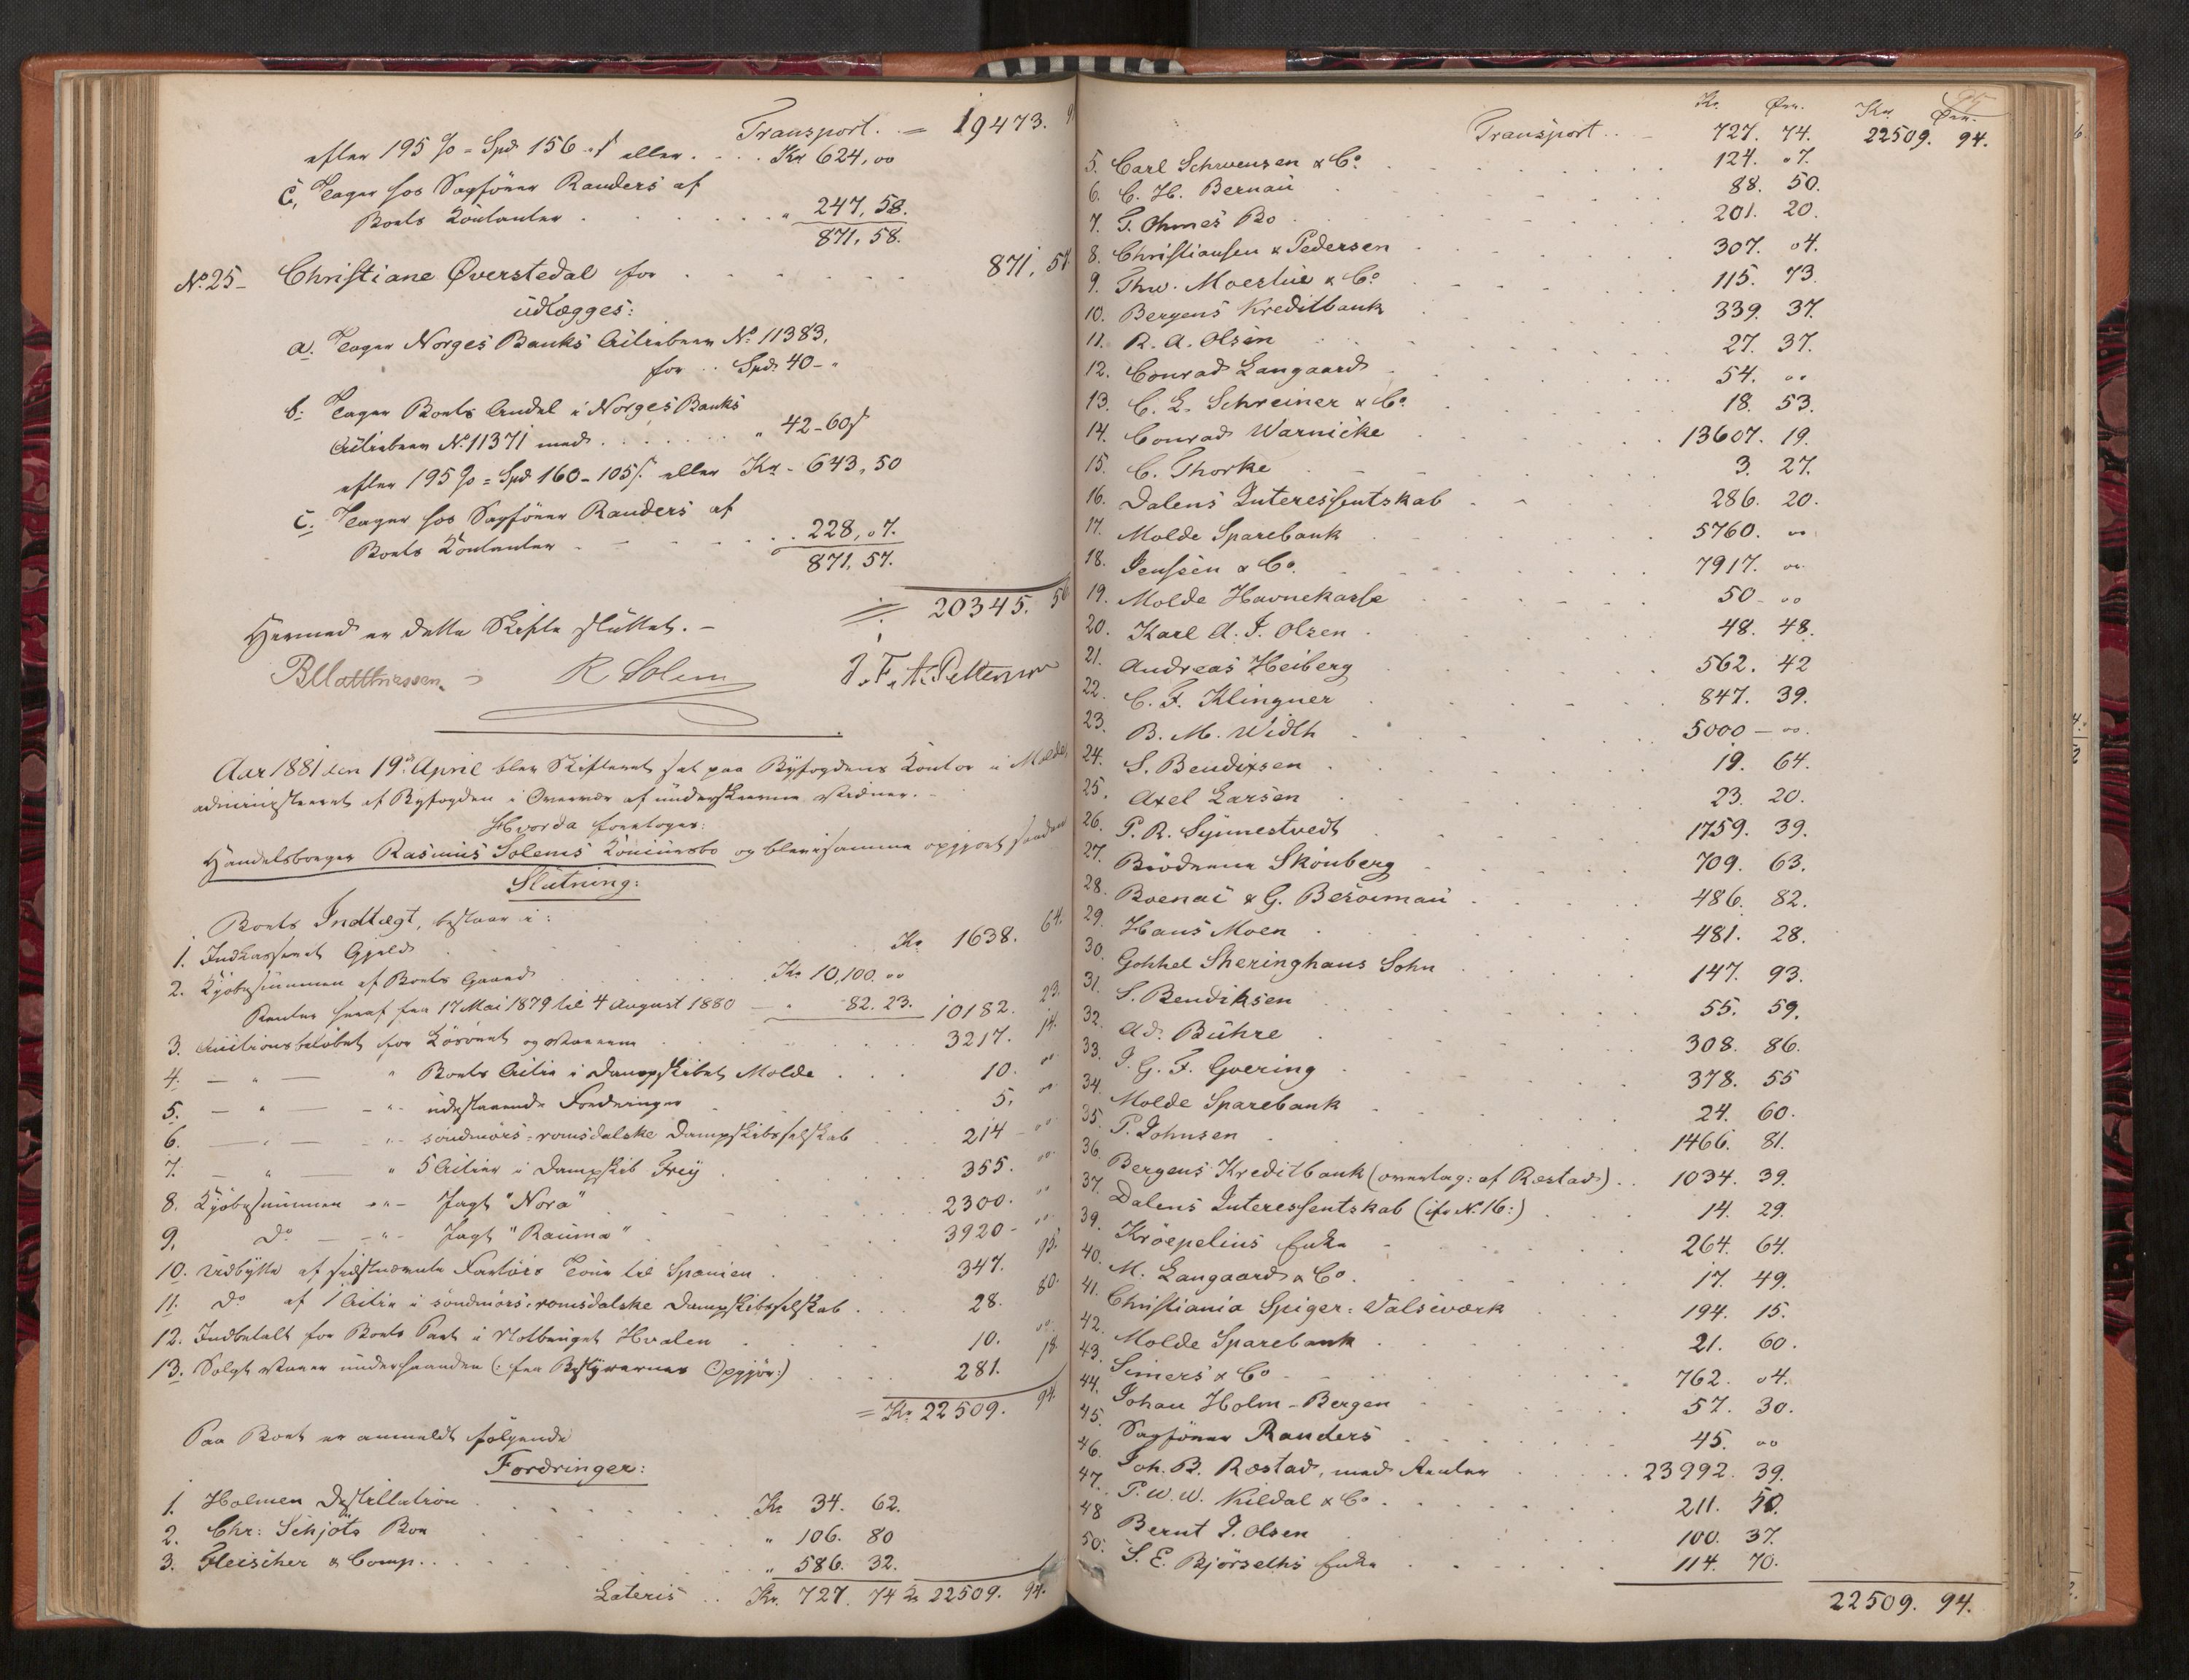 Transport. = 19473. 9
efter 195 % = Spd 156 " ß eller . . . Kr 624, 00
c, Tager hos Sagförer Randers af
Boets Kontanter . . . " 247, 58.
871, 58.
No. 25 - Christiane Øverstedal for . . . 871, 57
udlægges:
a. Tager Norges Banks Actiebrev No 11383,
for .. Spd. 40 - "
b. Tager Boets Andel i Norges Banks
Actiebrev No. 11371 med . . . " 42-60ß
efter 195 % = Spd 160-105ß. eller Kr. - 643, 50
c. Tager hos Sagförer Randers af
Boets Kontanter . . . 228, 07.
871, 57.
20345. 56
Hermed er dette Skifte sluttet. -
B Matthiessen. R Solem J. F. A. Petterson
Aar 1881 den 19de April blev Skifteret sat paa Byfogdens Kontor i Molde,
administreret af Byfogden i Overvær af underskrevne Vidner. -
Hvorda foretoges:
Handelsborger Rasmus Solems Konkursbo og blev samme opgjort saadan
Slutning:
Boets Indtægt, bestaar i:
1. Indkasseret Gjæld . . . Kr 1638. 64.
2. Kjöbesummen af Boets Gaard . . . Kr 10,100. 00
Renter heraf fra 17 Mai 1879 til 4 August 1880 — " 82. 23. 10182. 23.
3. Auctionsbelöbet for Lösöret og Varerne . . . 3217. 14.
4. — " — " Boets Actie i Dampskibet Molde . . . 10. 00
5. — " — " udestaaende Fordringer . . . 5. 00
6. — " — " söndmörs-romsdalske Dampskibsselskab . . . 214 - 00
7. — " — " 5 Actier i Dampskib Frey . . . 355. 00
8. Kjöbesummen " - Jagt "Nora" . . . 2300. 00
9. Do — " - Jagt "Rauma" . . . 3920 - 00
10. Udbytte af sidstnævnte Fartöis Tour til Spanien . . . 347. 95.
11. Do af 1 Actie i söndmörs-romsdalske Dampskibsselskab . . . 28. 80.
12. Indbetalt for Boets Part i Notbruget Hvalen . . . 10. 00
13. Solgte Varer underhaanden (: fra Bestyrernes Opgjör :) . . . 281. 18.
= Kr 22509. 94.
Paa Boet er anmeldt fölgende
Fordringer:
1. Holmen Destillation . . . Kr 34. 62.
2. Chr: Schjöts Bo . . . " 106. 80
3. Fleischer & Comp. . . . " 586. 32.
Lateris . . Kr. 727. 74 Kr 22509. 94.
Kr. Øre. Kr Øre.
Transport . . 727. 74. 22509. 94.
5. Carl Schwensen & Co . . . 124. 07.
6. C. H. Bernau . . . 88. 50.
7. T. Ohmes Bo . . . 201. 20.
8. Christiansen & Pedersen . . . 307. 04.
9. Thv. Moestue & Co . . . 115. 73.
10. Bergens Kreditbank . . . 339. 37.
11. R. A. Olsen . . . 27. 37.
12. Conrad Langaard . . . 54. 00
13. C. L. Schreiner & Co. . . . 18. 53.
14. Conrad Warnicke . . . 13607. 19.
15. C. Thorke . . . 3. 27.
16. Dalens Interessentskab . . . 286. 20.
17. Molde Sparebank . . . 5760. 00
18. Jenssen & Co. . . . 7917. 00
19. Molde Havnekasse . . . 50 - 00
20. Karl A. J. Olsen . . . 48. 48.
21. Andreas Heiberg . . . 562. 42
22. C. F. Klingner . . . 847. 39.
23. B. M. Width . . . 5000 - 00.
24. S. Bendixsen . . . 19. 64.
25. Axel Larsen . . . 23. 20.
26. P. R. Synnestvedt . . . 1759. 39.
27. Brödrene Skönberg . . . 709. 63.
28. & G. . . . 486. 82.
29. Hans Moen . . . 481. 28.
30. Gokkel Sheringhaus Sohn . . . 147. 93.
31. S. Bendiksen . . . 55. 59.
32. Ad. Bühre . . . 308. 86.
33. J. G. F. Goering . . . 378. 55
34. Molde Sparebank . . . 24. 60.
35. P. Johnsen . . . 1466. 81.
36. Bergens Kreditbank (overtag: af Rostad) . . 1034. 39.
37. Dalens Interessentskab (ifr No. 16:) . . . 14. 29.
39. Kröepelius Enke . . . 264. 64.
40. M. Langaard & Co. . . . 17. 49.
41. Christiania Spiger: Valseværk . . . 194. 15.
42. Molde Sparebank . . . 21. 60.
43. Simers & Co . . . 762. 04.
44. Johan Holm - Bergen . . . 57. 30.
45. Sagförer Randers . . . 45. 00
46. Joh. B. Rostad, med Renter . . . 23992. 39.
47. P. W. W. Kildal & Co . . . 211. 50.
48 Bernt J. Olsen . . . 100. 37.
50. S. E. Björseths Enke . . . 114. 70.
22509. 94.